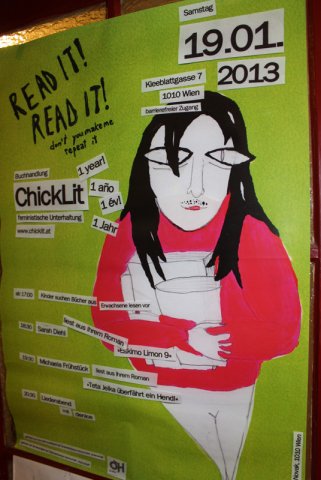 READ IT!
READ IT!
don't you make me
repeat it
Samstag
19.01.
2013
Kleeblattgasse 7
1010 Wien
barrierefreier Zugang
Buchhandlung
ChickLit
feministische Unterhaltung
www.chicklit.at
1 year!
1 año
1 év!
1 Jahr
ab 17:00 Kinder suchen Bücher aus Erwachsene lesen vor
18:30 Sarah Diehl liest aus ihrem Roman
»Eskimo Limon 9«
19:30 Michaela Frühstück liest aus ihrem Roman
»Teta Jelka überfährt ein Hendl«
20:30 Liederabend
mit denice
ÖH
Novak, 1010 Wien